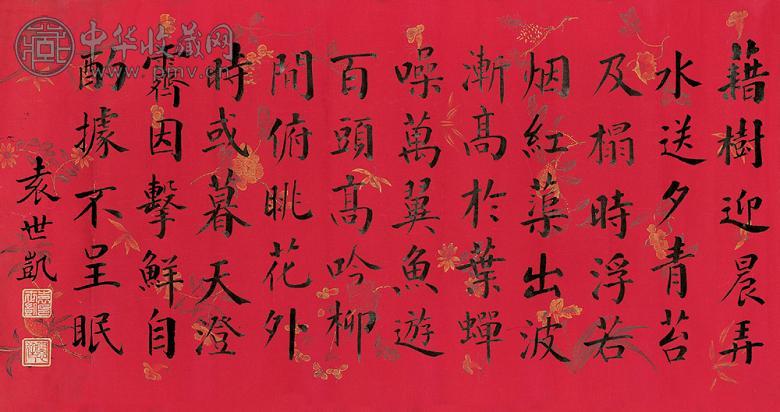 藉樹迎晨弄
水送夕青苔
及榻時浮若
烟紅蕖出波
漸高於葉蟬
噪萬翼魚遊
百頭高吟柳
間俯眺花外
時或暮天澄
霽因擊鮮自
酌據不呈眠
袁世凱
中华收藏网